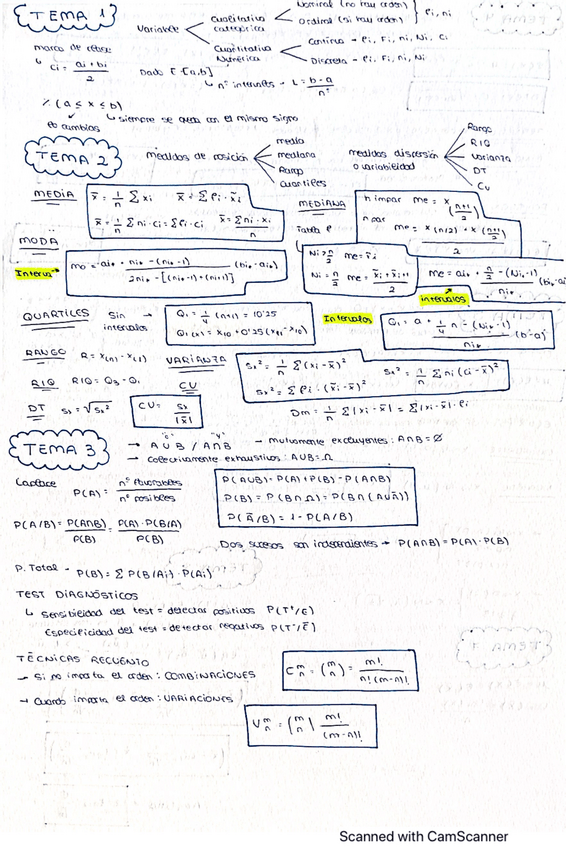 TEMA 1
Variable
Cualitativa categórica
Nominal (no hay orden)
Ordinal (si hay orden)
fi, ni
Cuantitativa Numérica
Continua - fi, Fi, ni, Ni, ci
Discreta - fi, Fi, ni, Ni
marca de clase
ci = (ai + bi)/2
Dado E [a,b]
nº intervalos - L = (b - a)/nº
(a ≤ x ≤ b)
siempre se queda con el mismo signo
cambios
TEMA 2
medidas de posición
media
mediana
Rango
cuartiles
medidas dispersión o variabilidad
Rango
RIQ
varianza
DT
CV
MEDIA
x̄ = 1/n Σ xi x̄ = Σ fi · x̃i
x̄ = 1/n Σ ni · ci = Σ fi · ci x̄ = Σ ni · xi / n
MEDIANA
n impar me = x((n+1)/2)
n par
me = (x(n/2) + x((n+1)/2))/2
Tabla
Ni > n/2 me = x̃i
Ni = n/2 me = (x̃i + x̃i+1)/2
me = ai* + (n/2 - (Ni*-1))/ni* (bi* - ai*)
intervalos
MODA
Interv.
mo = ai* + (ni* - (ni*-1))/(2ni* - [(ni*-1) + (ni+1)]) (bi* - ai*)
QUARTILES
Sin intervalos
Q1 = 1/4 (n+1) = 10'25
Q1(x) = x10 + 0'25(x11 - x10)
Intervalos
Q1 = a + (1/4 n - (Ni*-1))/ni* (b-a)
RANGO R = x(n) - x(1)
VARIANZA
Sx² = 1/n Σ(xi - x̄)² Sx² = 1/n Σ ni (ci - x̄)²
Sx² = Σ fi · (x̃i - x̄)²
RIQ RIQ = Q3 - Q1
CV
CV = Sx/|x̄|
DT Sx = √Sx²
Dm = 1/n Σ |xi - x̄| = Σ |xi - x̄| · fi
TEMA 3
"o" "y"
→ A ∪ B / A ∩ B → mutuamente excluyentes: A∩B = Ø
→ colectivamente exhaustivos: A∪B = Ω
Laplace
P(A) = nº favorables / nº posibles
P(A∪B) = P(A) + P(B) - P(A∩B)
P(B) = P(B∩Ω) = P(B∩(A∪Ā))
P(Ā/B) = 1 - P(A/B)
P(A/B) = P(A∩B)/P(B) = P(A) · P(B/A)/P(B)
Dos sucesos son independientes → P(A∩B) = P(A) · P(B)
P. Total - P(B) = Σ P(B/Ai) · P(Ai)
TEST DIAGNÓSTICOS
Sensibilidad del test = detectar positivos P(T⁺/E)
Especificidad del test = detectar negativos P(T⁻/Ē)
TÉCNICAS RECUENTO
→ Si no importa el orden: COMBINACIONES
C m n = (m n) = m!/(n!(m-n)!)
→ Cuando importa el orden: VARIACIONES
V m n = (m n) m!/(m-n)!
Scanned with CamScanner